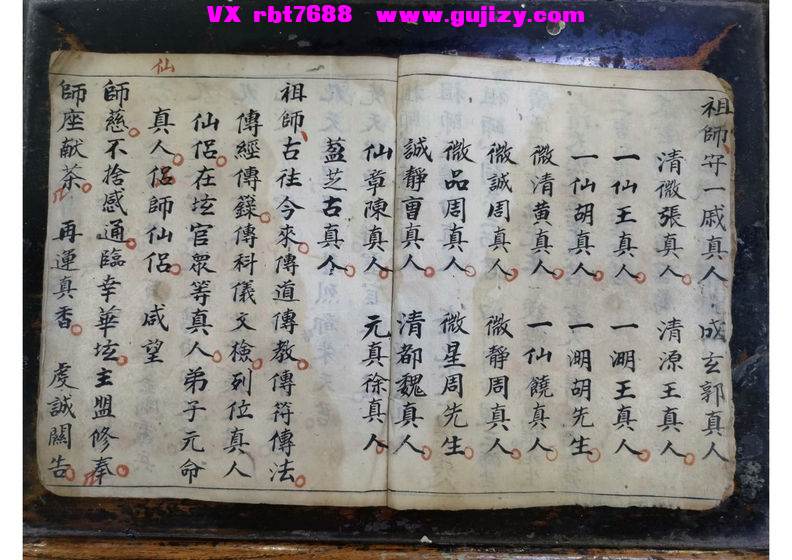 VX rbt7688 www.gujizy.com
祖師守一戚真人 成玄郭真人
清微張真人 清源王真人
一仙王真人 一溯王真人
一仙胡真人 一溯胡先生
微清黄真人 一仙饒真人
微誠周真人 微靜周真人
微品周真人 微星周先生
誠靜曹真人 清都魏真人
仙章陳真人 元真徐真人
蓋芝古真人
祖師古往今來傳道傳教傳符傳法
傳經傳籙傳科儀文檢列位真人
仙侶在坛官眾等真人弟子元命
真人侶師仙侶 咸望
仙
師慈不捨感通臨幸華坛主盟修奉
師座献茶 再運真香 虔誠關告